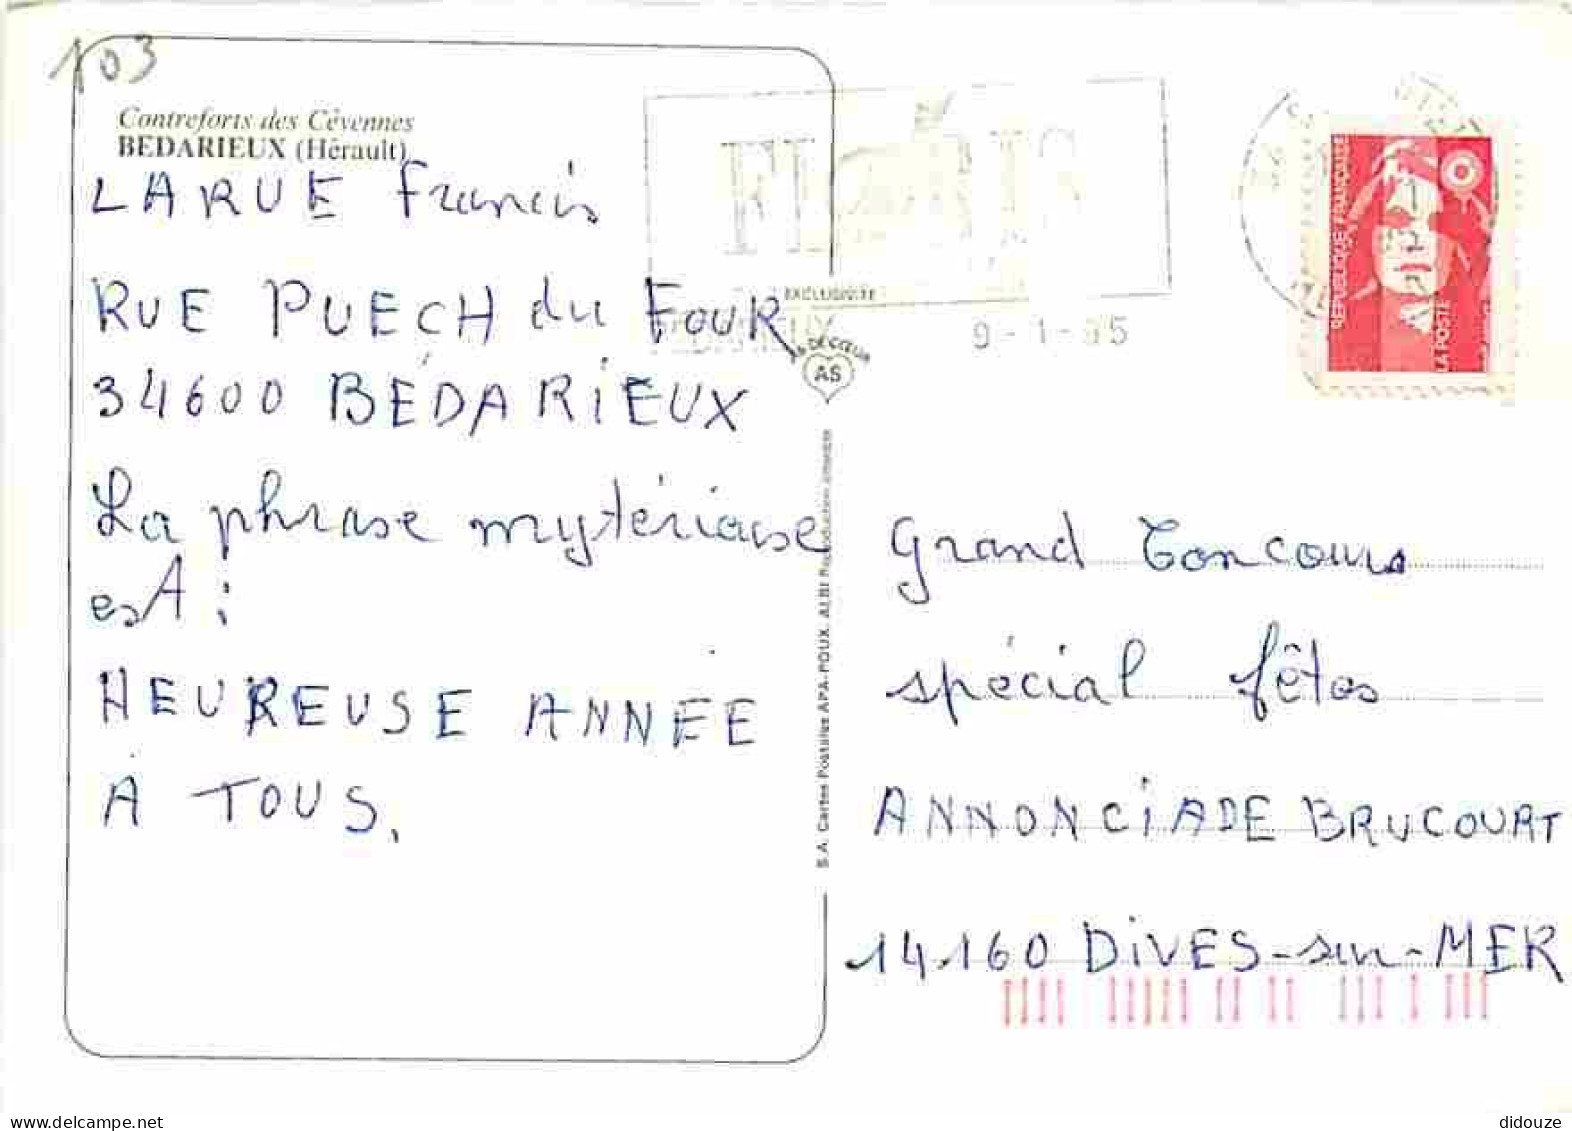 103
Contreforts des Cévennes
BEDARIEUX (Hérault)
LARUE Francis
RUE PUECH du FOUR
34600 BÉDARIEUX
La phrase mystérieuse
est :
HEUREUSE ANNEE
A TOUS.
EXCLUSIVITÉ
AS DE CŒUR
AS
S.A. Cartes Postales APA-POUX, ALBI Reproduction interdite
9-1-95
REPUBLIQUE FRANÇAISE
LA POSTE
Grand Concours
spécial fêtes
ANNONCIADE BRUCOURT
14160 DIVES-sur-MER
didouze